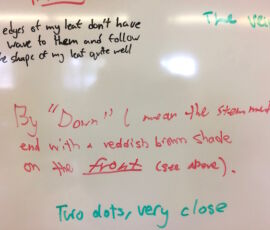 edges of my leaf don't have
wave to them and follow
the shape of my leaf quite well
The
By "Down" I mean the
end with a reddish brown shade
on the front (see above).
Two dots, very close